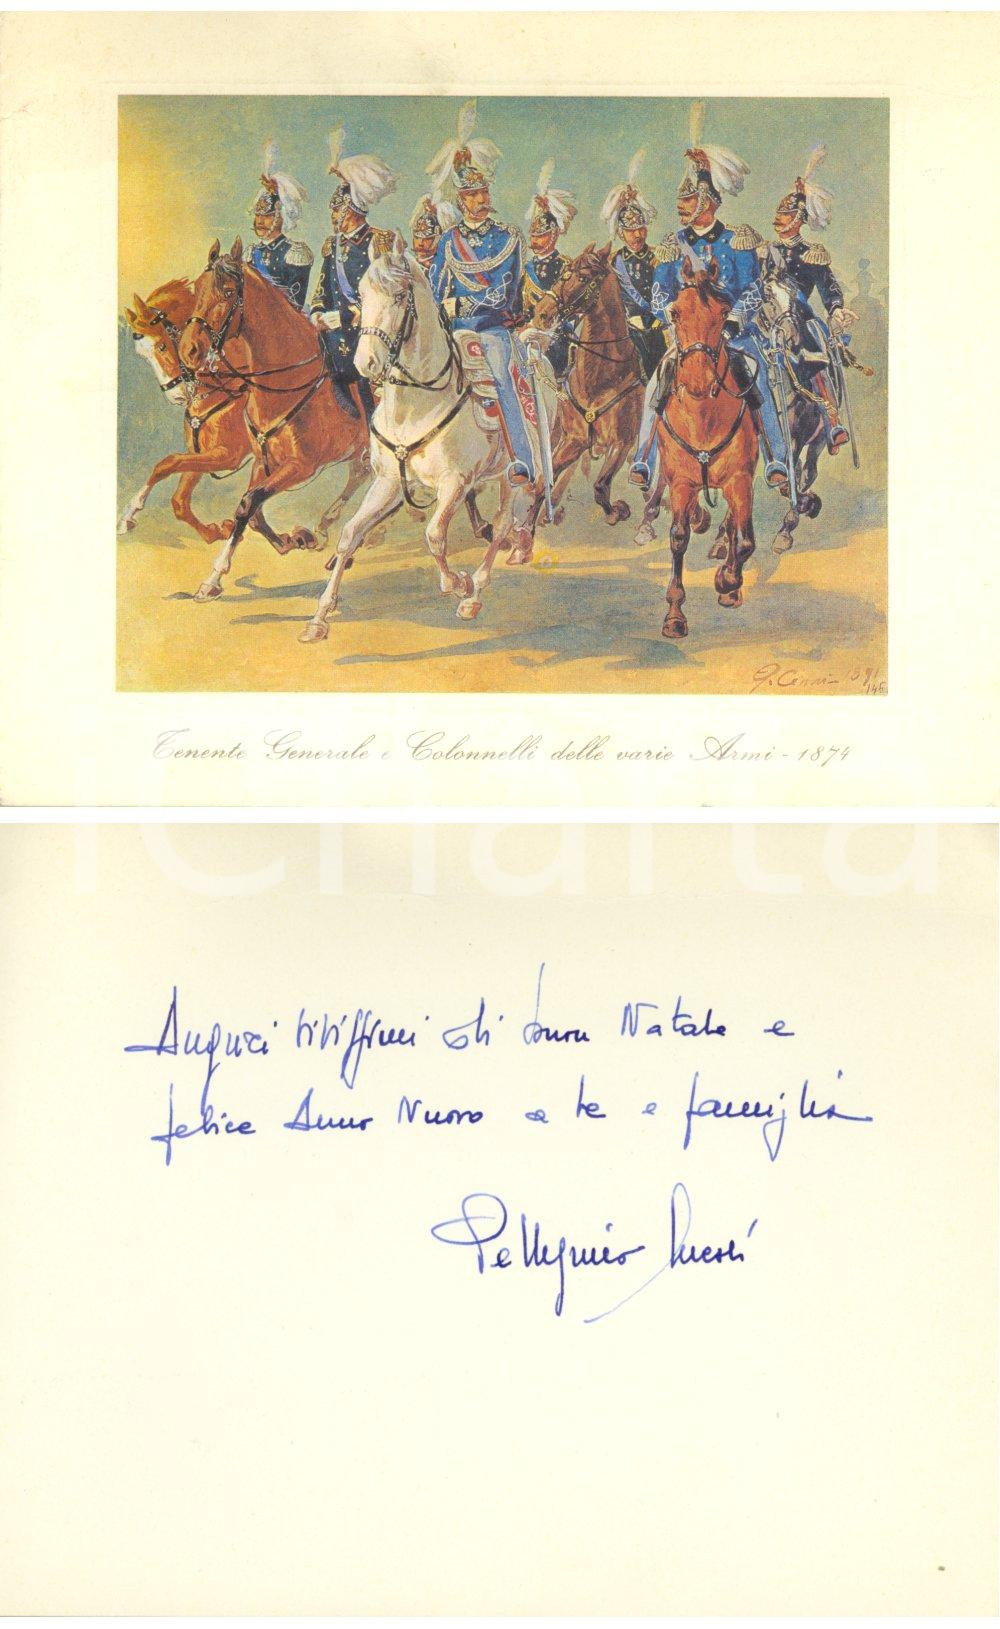 G. Cenni 1891
146
Tenente Generale e Colonnelli delle varie Armi - 1874
iCharta
Auguri vivissimi di buon Natale e
felice Anno Nuovo a te e famiglia
Pellegrino